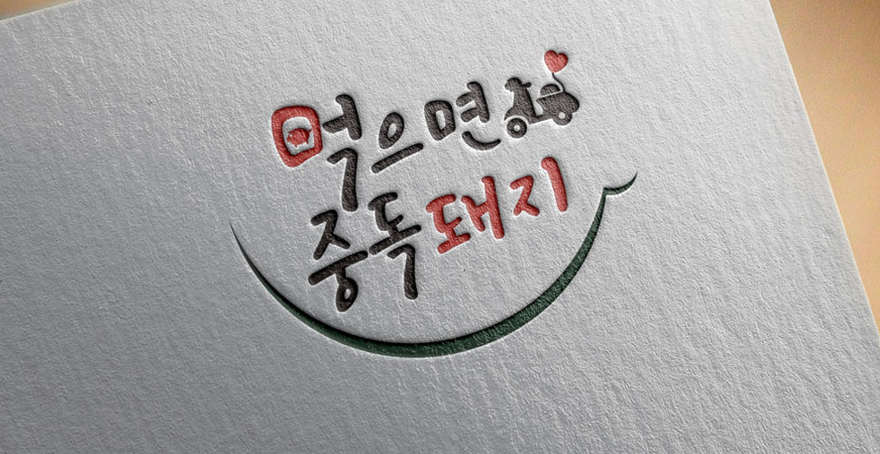 먹으면
중독돼지